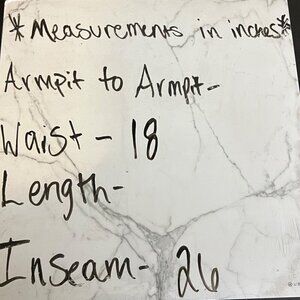 *Measurements in inches*
Armpit to Armpit-
Waist - 18
Length-
Inseam- 26